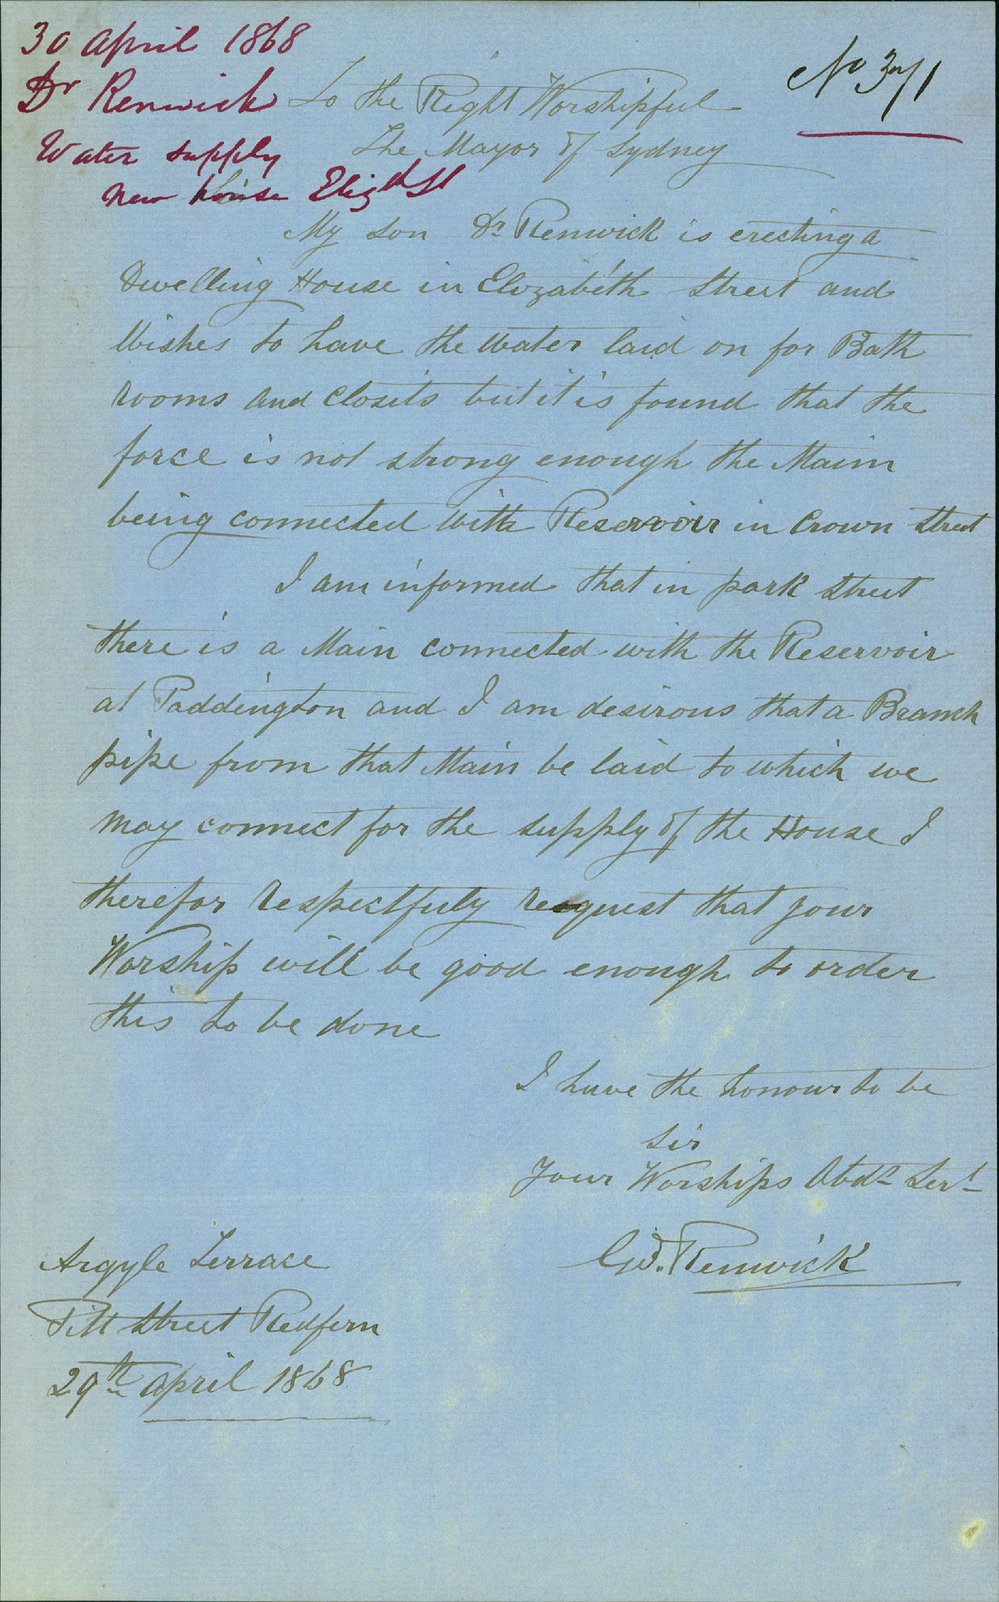 30 April 1868
Dr Renwick
Water supply
new house Elizth St
No 371
To the Right Worshipful
The Mayor of Sydney
My son Dr Renwick is erecting a
Dwelling House in Elizabeth Street and
Wishes to have the Water laid on for Bath
rooms and Closits but it is found that the
force is not strong enough the Maim
being connected with Reservoir in Crown Street
I am informed that in park Street
there is a Main connected with the Reservoir
at Paddington and I am desirous that a Branch
pipe from that Main be laid to which we
may connect for the supply of the House I
therefor respectfuly request that your
Worship will be good enough to order
this to be done
I have the honour to be
Sir
Your Worships Obdt Servt
Geo. Renwick
Argyle Terrace
Pitt Street Redfern
29th April 1868